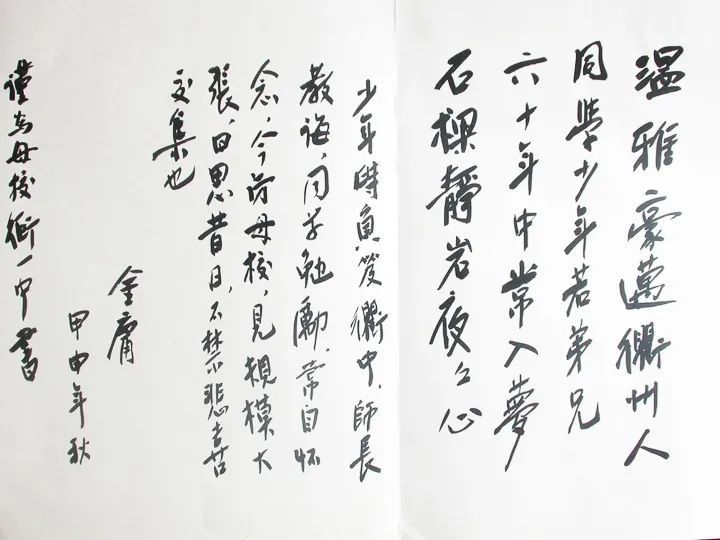 溫雅豪邁衢州人
同學少年若弟兄
六十年中常入夢
石樑靜岩夜々心
少年時負笈衢中,師長
教誨,同学勉勵,常自怀
念,今访母校,見規模大
張,回思昔日,不禁悲喜
交集也
金庸
甲申年秋
謹为母校衢一中書